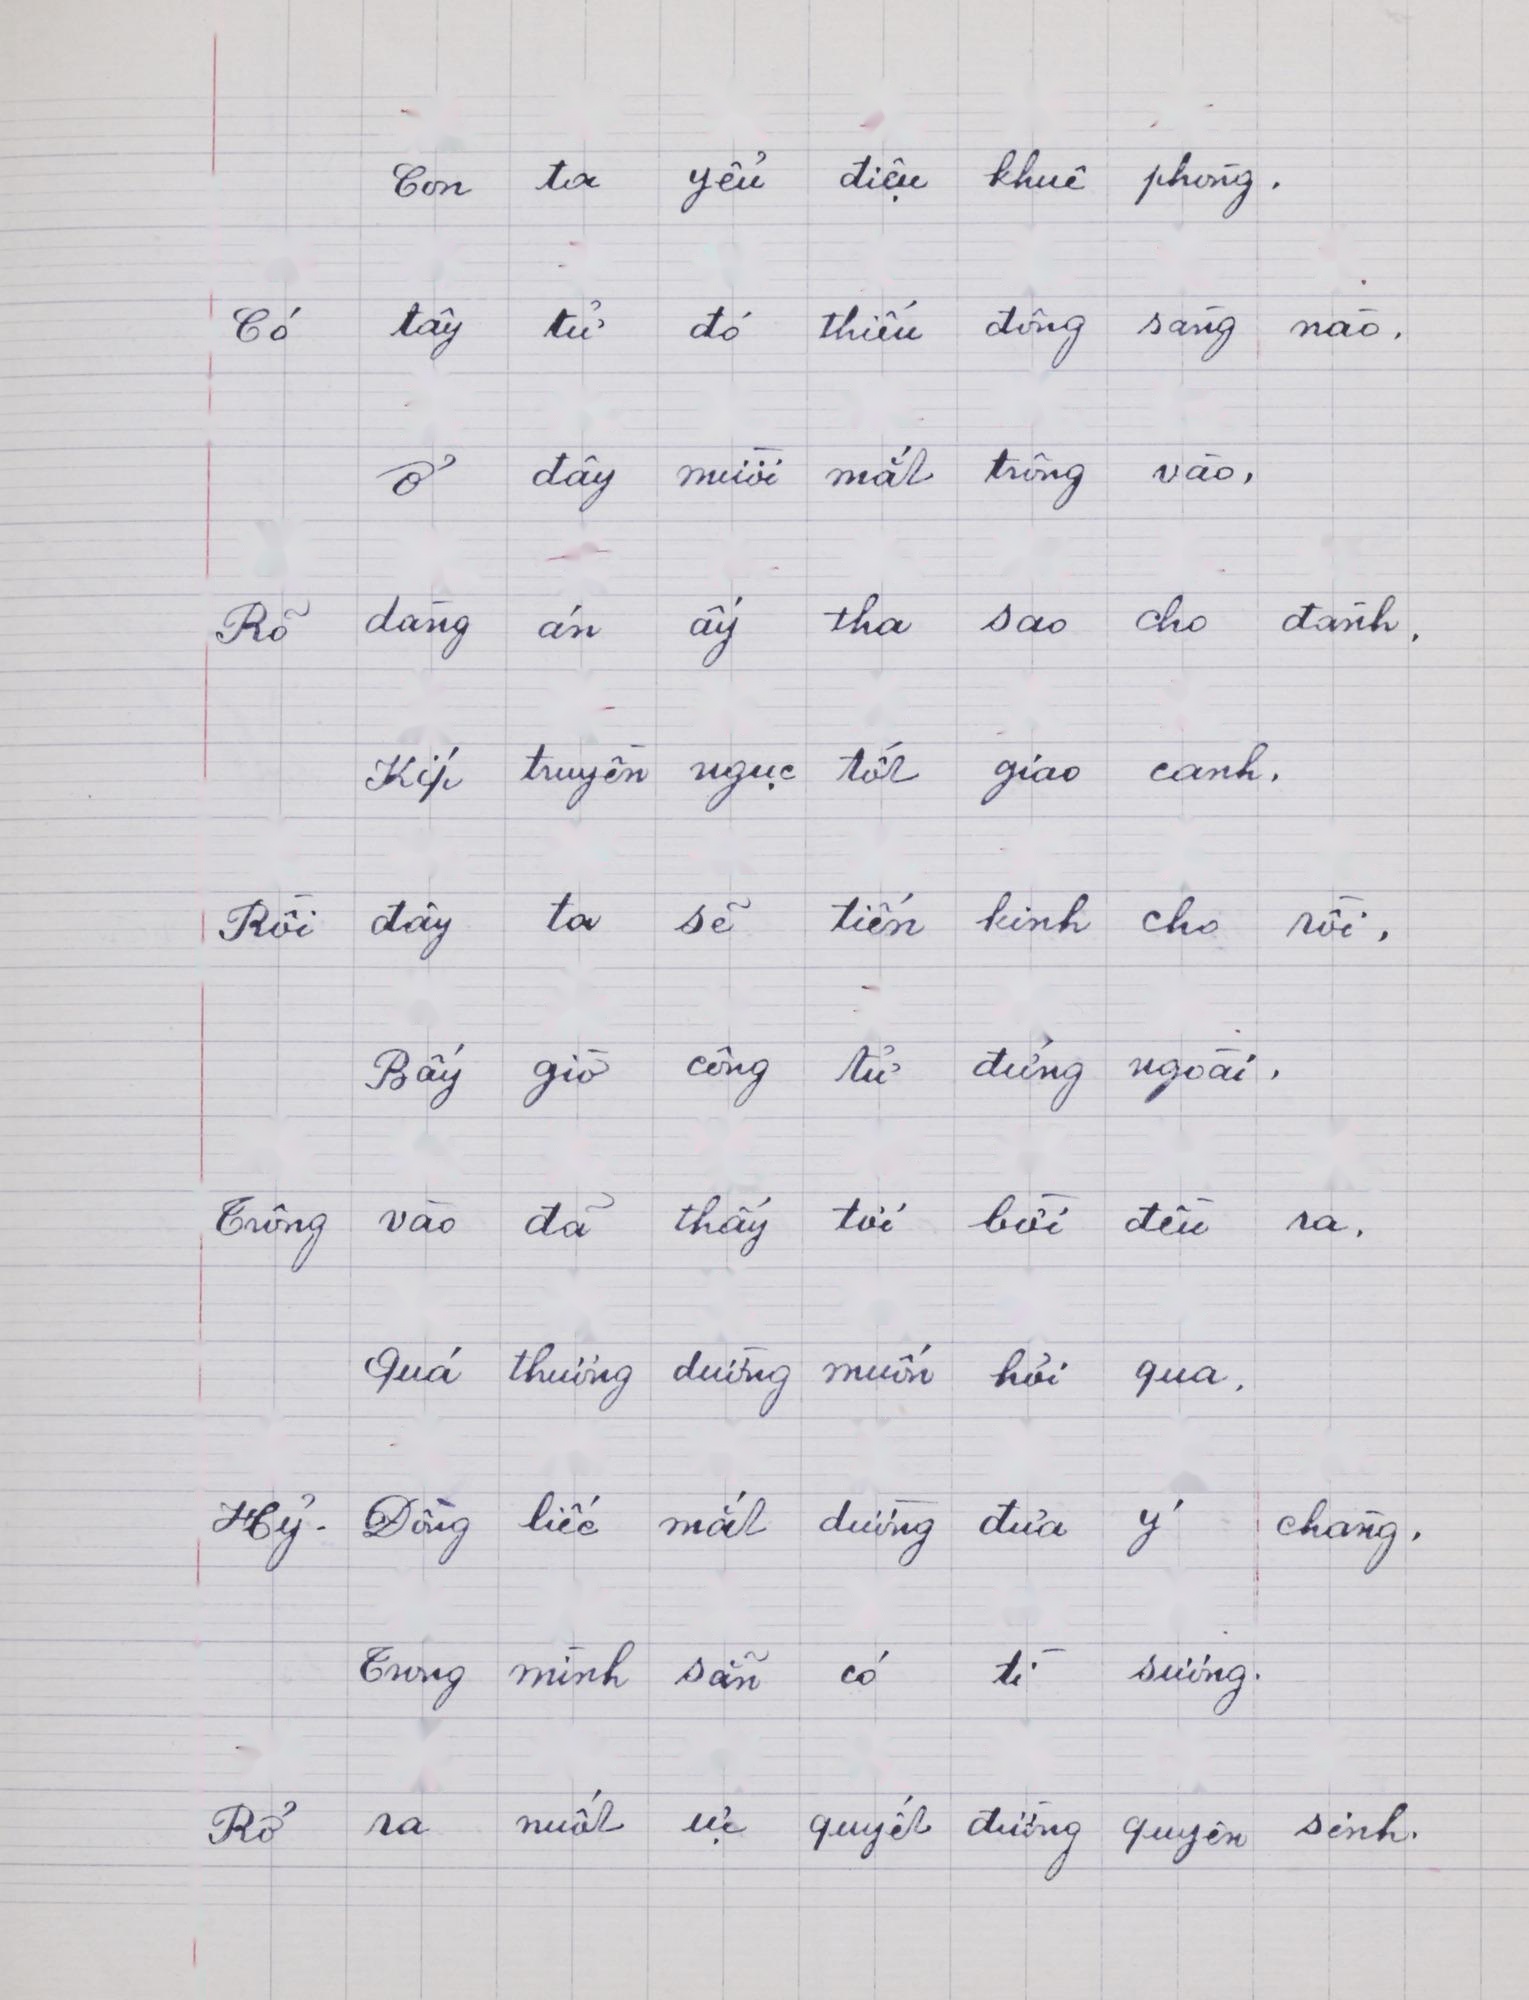 Con ta yểu điệu khuê phòng.
Có tây tử đó thiếu đông sàng nào.
Ở đây mười mắt trông vào,
Rõ dàng án ấy tha sao cho đành.
Kíp truyền ngục tốt giao canh.
Rồi đây ta sẽ tiến kinh cho rồi,
Bấy giờ công tử đứng ngoài.
Trông vào đã thấy tơi bời đều ra.
Quá thương dường muốn hỏi qua.
Hỷ-Đồng liếc mắt dường đưa ý chàng.
Trong mình sẵn có tì sương.
Rở ra nuốt ực quyết đường quyên sinh.